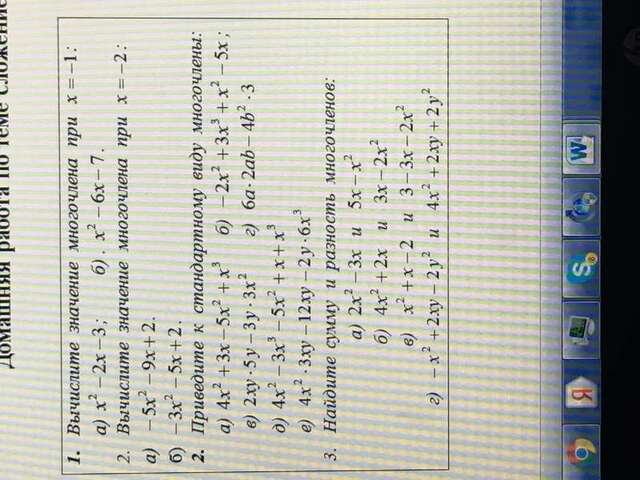 Домашняя работа по теме сложение
1. Вычислите значение многочлена при x = −1:
а) x² − 2x − 3; б). x² − 6x − 7.
2. Вычислите значение многочлена при x = −2:
а) −5x² − 9x + 2.
б) −3x² − 5x + 2.
2. Приведите к стандартному виду многочлены:
а) 4x² + 3x − 5x² + x³ б) −2x² + 3x³ + x² − 5x;
в) 2xy · 5y − 3y · 3x² г) 6a · 2ab − 4b² · 3
д) 4x² − 3x³ − 5x² + x + x³
е) 4x² · 3xy − 12xy − 2y · 6x³
3. Найдите сумму и разность многочленов:
а) 2x² − 3x и 5x − x²
б) 4x² + 2x и 3x − 2x²
в) x² + x − 2 и 3 − 3x − 2x²
г) −x² + 2xy − 2y² и 4x² + 2xy + 2y²
Я S W